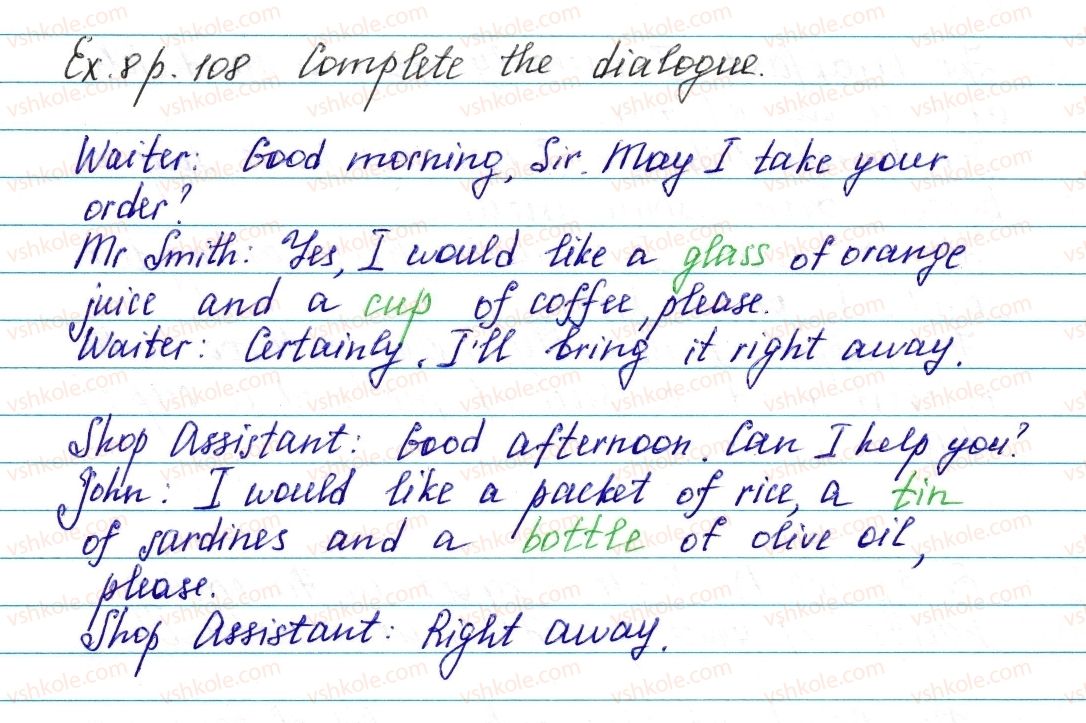 Ex. 8 p. 108 Complete the dialogue.
Waiter: Good morning, Sir. May I take your
order?
Mr Smith: Yes, I would like a glass of orange
juice and a cup of coffee, please.
Waiter: Certainly. I'll bring it right away.
Shop Assistant: Good afternoon. Can I help you?
John: I would like a packet of rice, a tin
of sardines and a bottle of olive oil,
please.
Shop Assistant: Right away.